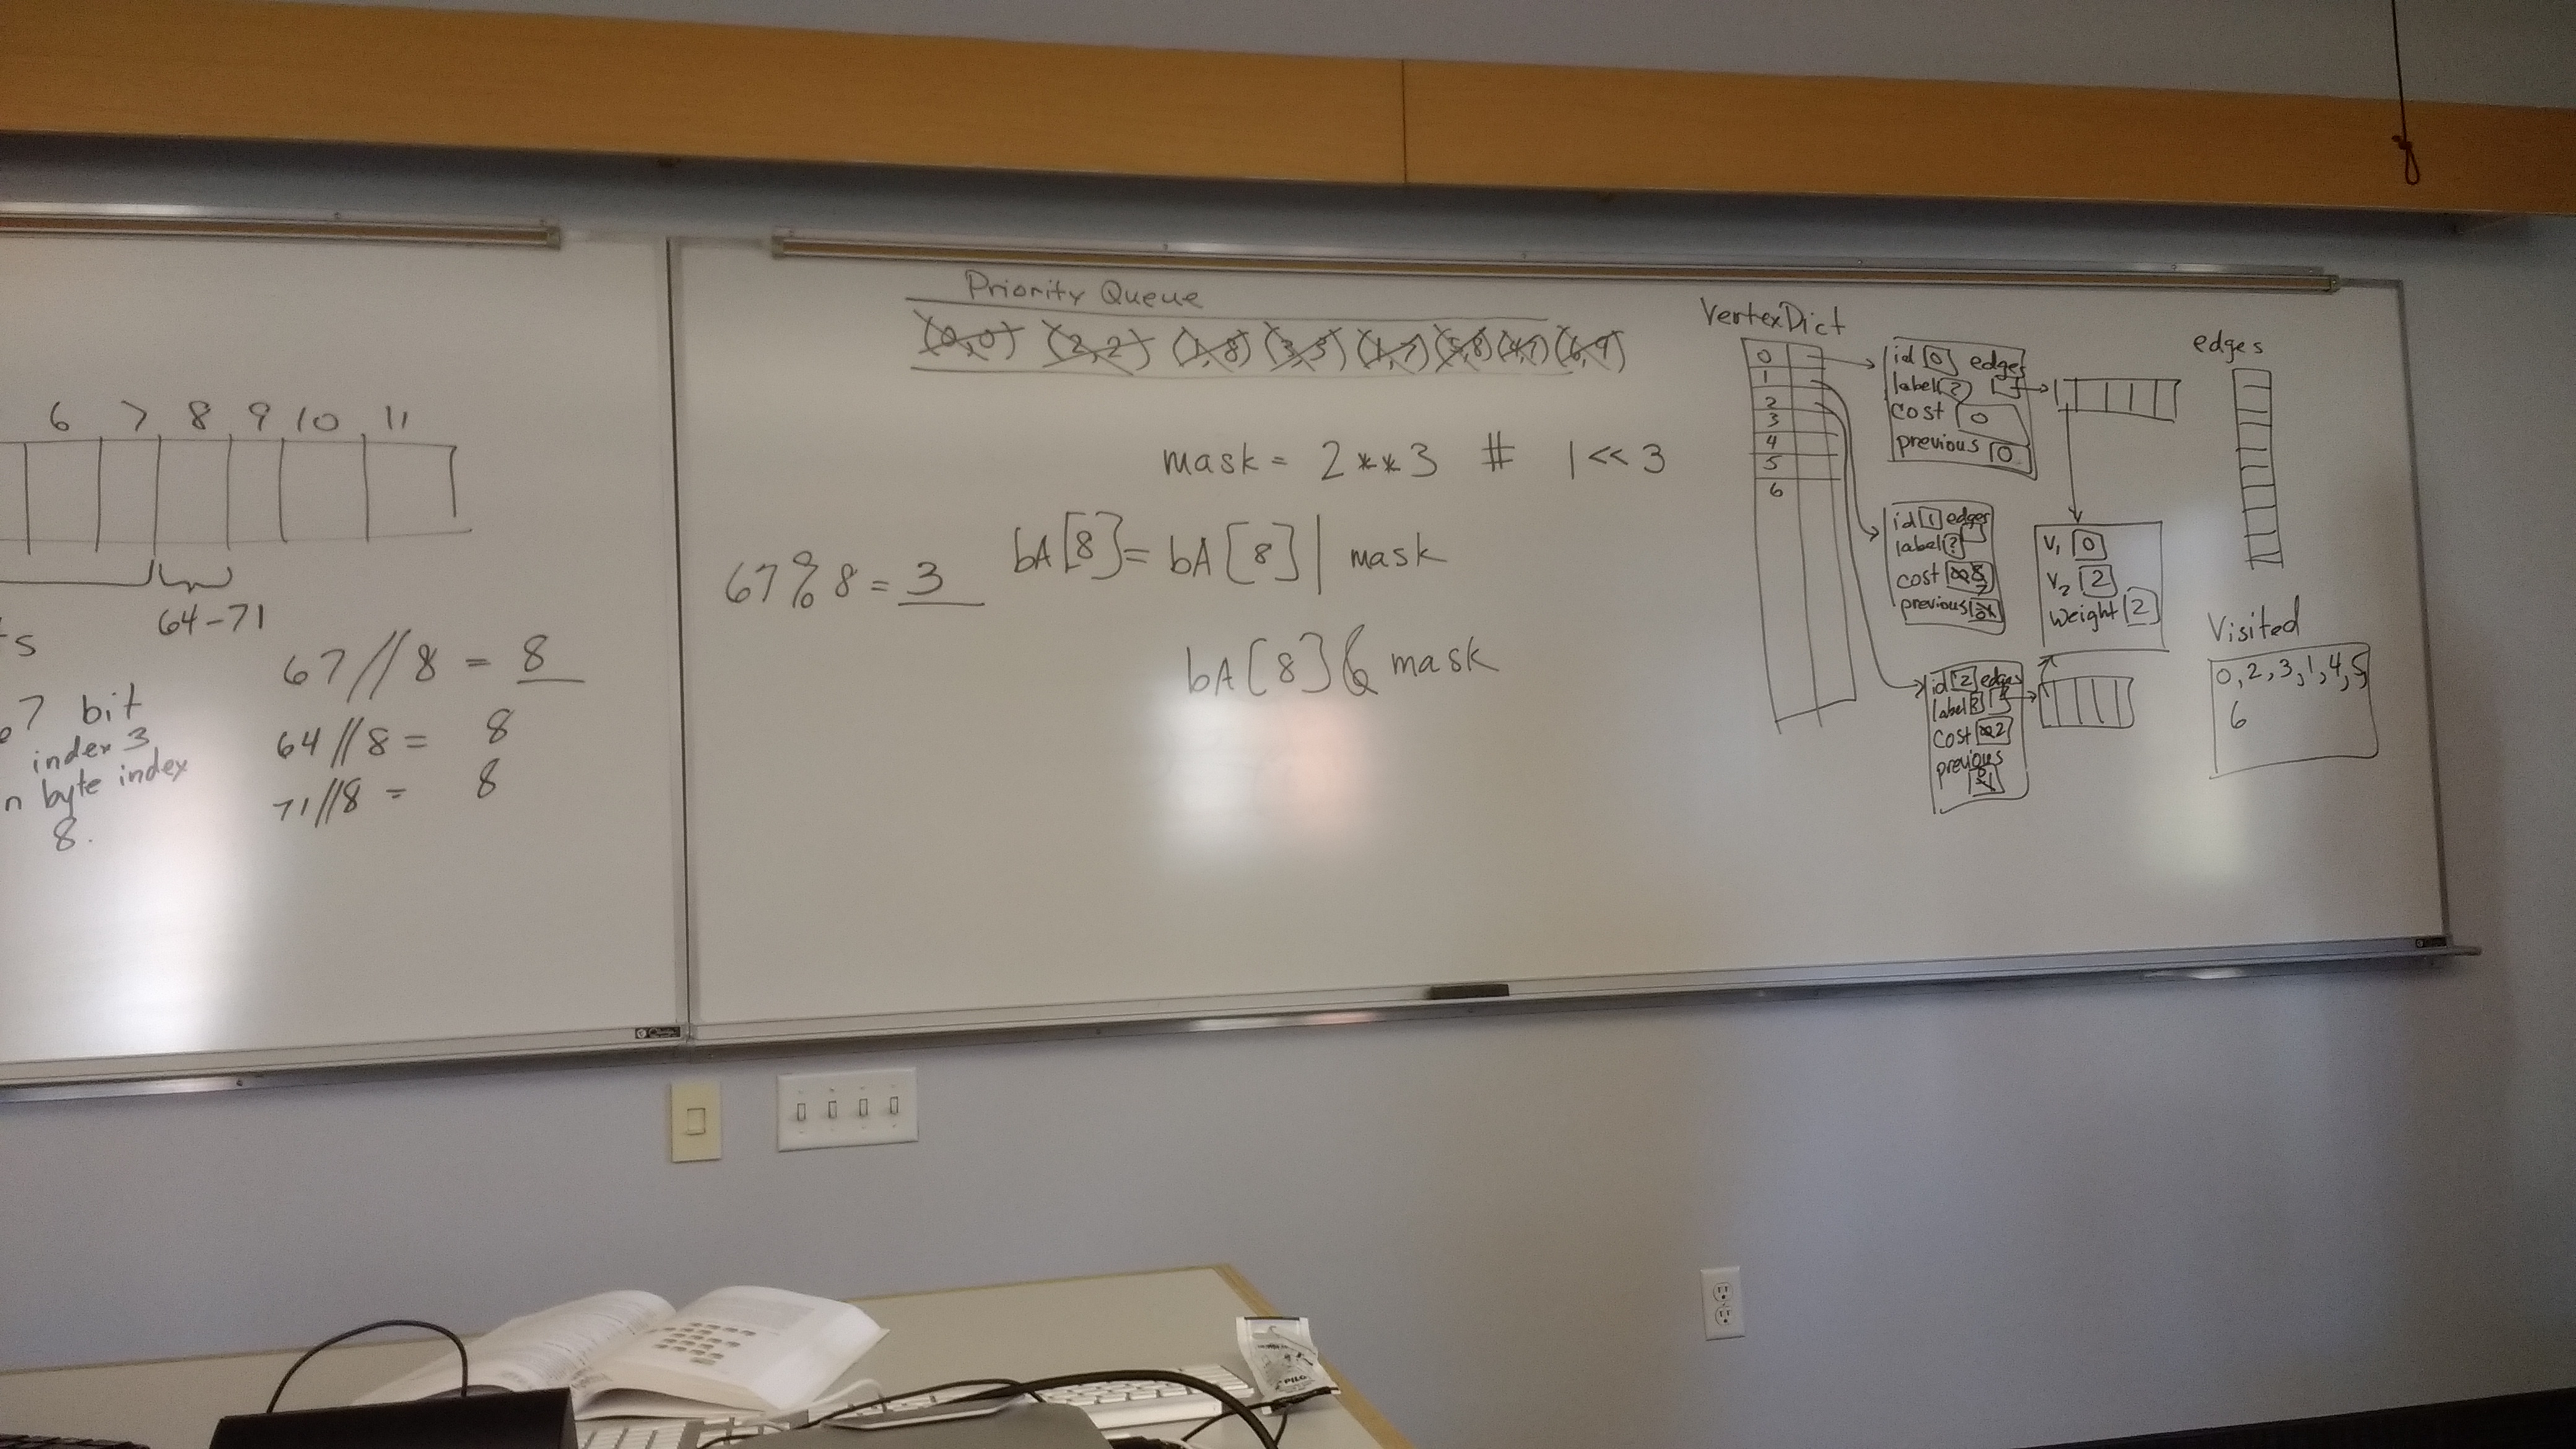 6 7 8 9 10 11
64-71
67//8 = 8
7 bit
index 3
n byte index
8.
64//8 = 8
71//8 = 8
Priority Queue
(0,0) (2,2) (1,8) (3,5) (1,7) (5,8) (4,7) (6,9)
mask = 2**3 # 1<<3
67%8 = 3
bA[8] = bA[8] | mask
bA[8] & mask
VertexDict
0
1
2
3
4
5
6
id 0 edges
label ?
cost 0
previous 0
id 1 edges
label ?
cost ∞ 8 7
previous
V1 0
V2 2
weight 2
id 2 edges
label ?
cost ∞ 2
previous
edges
Visited
0, 2, 3, 1, 4, 5,
6